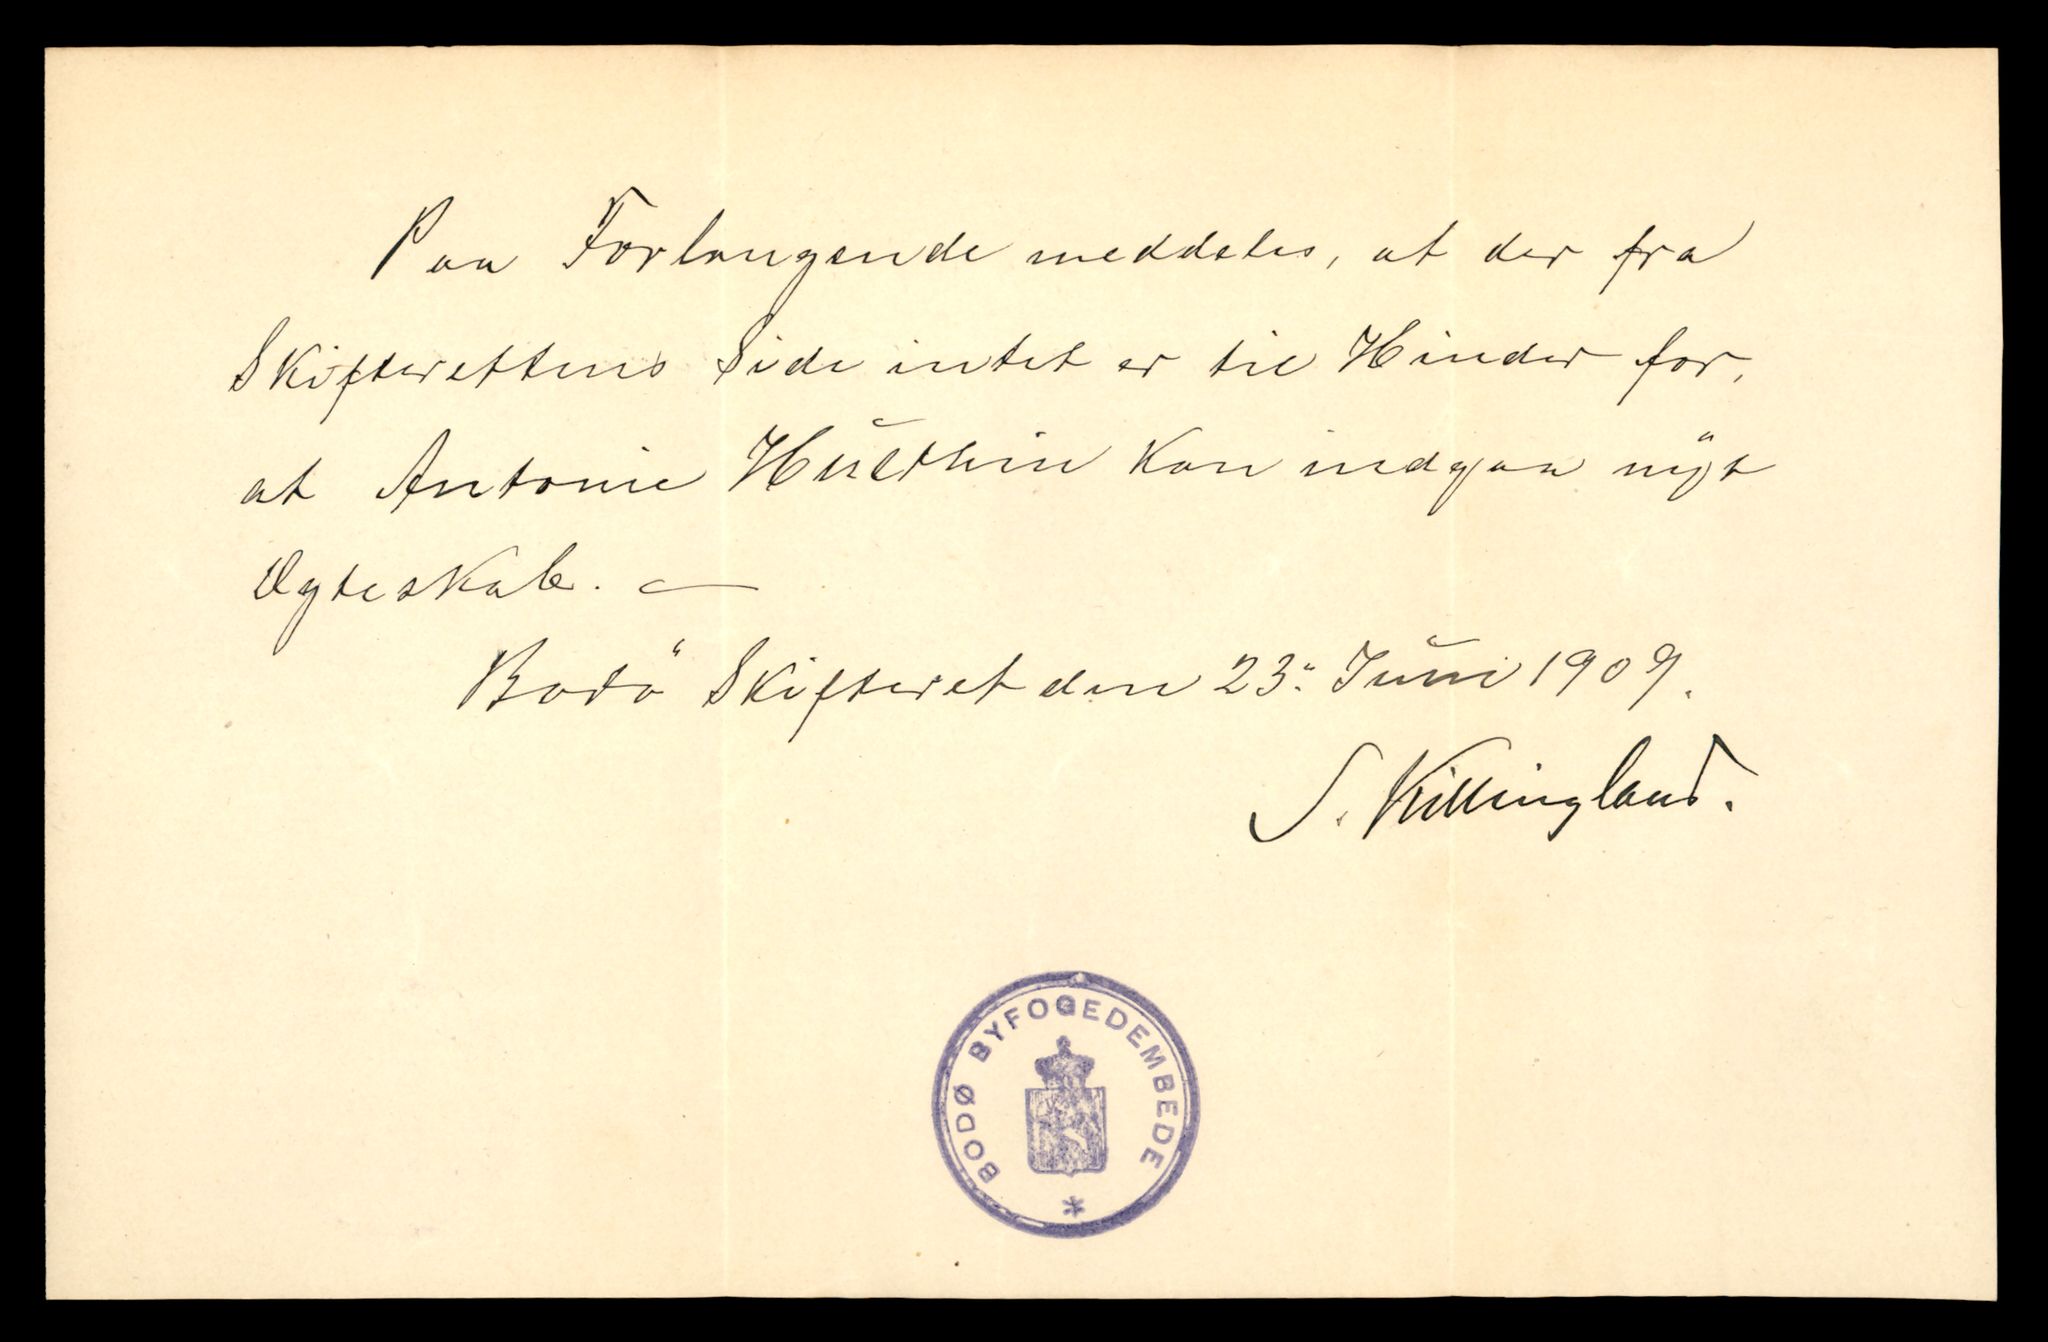 Paa Forlangende meddeles, at der fra
Skifterettens Side intet er til Hinder for,
at Antonie Hulthin kan indgaa nyt
Ægteskab. —
Bodö Skifteret den 23. Juni 1909.
S. Killingland.
BODØ BYFOGEDEMBEDE
*